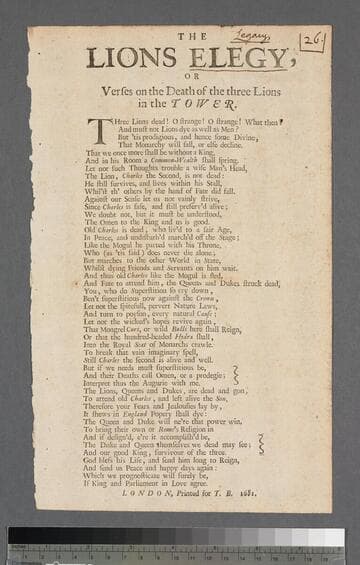 THE
Legacy,
26.
LIONS ELEGY,
OR
Verses on the Death of the three Lions
in the TOWER.
THree Lions dead! O strange! O strange! What then?
And must not Lions dye as well as Men?
But 'tis prodigious, and hence some Divine,
That Monarchy will fall, or else decline.
That we once more shall be without a King,
And in his Room a Common-Wealth shall spring.
Let not such Thoughts trouble a wise Man's Head,
The Lion, Charles the Second, is not dead:
He still survives, and lives within his Stall,
Whil'st th' others by the hand of Fate did fall.
Against our Sense let us not vainly strive,
Since Charles is safe, and still preserv'd alive;
We doubt not, but it must be understood,
The Omen to the King and us is good.
Old Charles is dead, who liv'd to a fair Age,
In Peace, and undisturb'd march'd off the Stage;
Like the Mogul he parted with his Throne,
Who (as 'tis said) does never die alone;
But marches to the other World in State,
Whilst dying Friends and Servants on him wait.
And thus old Charles like the Mogul is fled,
And Fate to attend him, the Queen and Dukes struck dead,
You, who do Superstition so cry down,
Ben't superstitious now against the Crown,
Let not the spitefull, pervert Nature Laws,
And turn to poyson, every natural Cause;
Let not the wicked's hopes revive again,
That Mongrel Curs, or wild Bulls here shall Reign,
Or that the hundred-headed Hydra shall,
Into the Royal Seat of Monarch crawle.
To break that vain imaginary spell,
Still Charles the second is alive and well.
But if we needs must superstitious be,
And their Deaths call Omen, or a prodegie;
Interpret thus the Augurie with me.
The Lions, Queens and Dukes, are dead and gon,
To attend old Charles, and left alive the Son,
Therefore your Fears and Jealousies lay by,
It shews in England Popery shall dye:
The Queen and Duke will ne're that power win,
To bring their own or Rome's Religion in
And if design'd, e're it accomplish'd be,
The Duke and Queen themselves we dead may see;
And our good King, surviveour of the three.
God bless his Life, and send him long to Reign,
And send us Peace and happy days again:
Which we prognosticate will surely be,
If King and Parliament in Love agree.
LONDON, Printed for T. B. 1681.